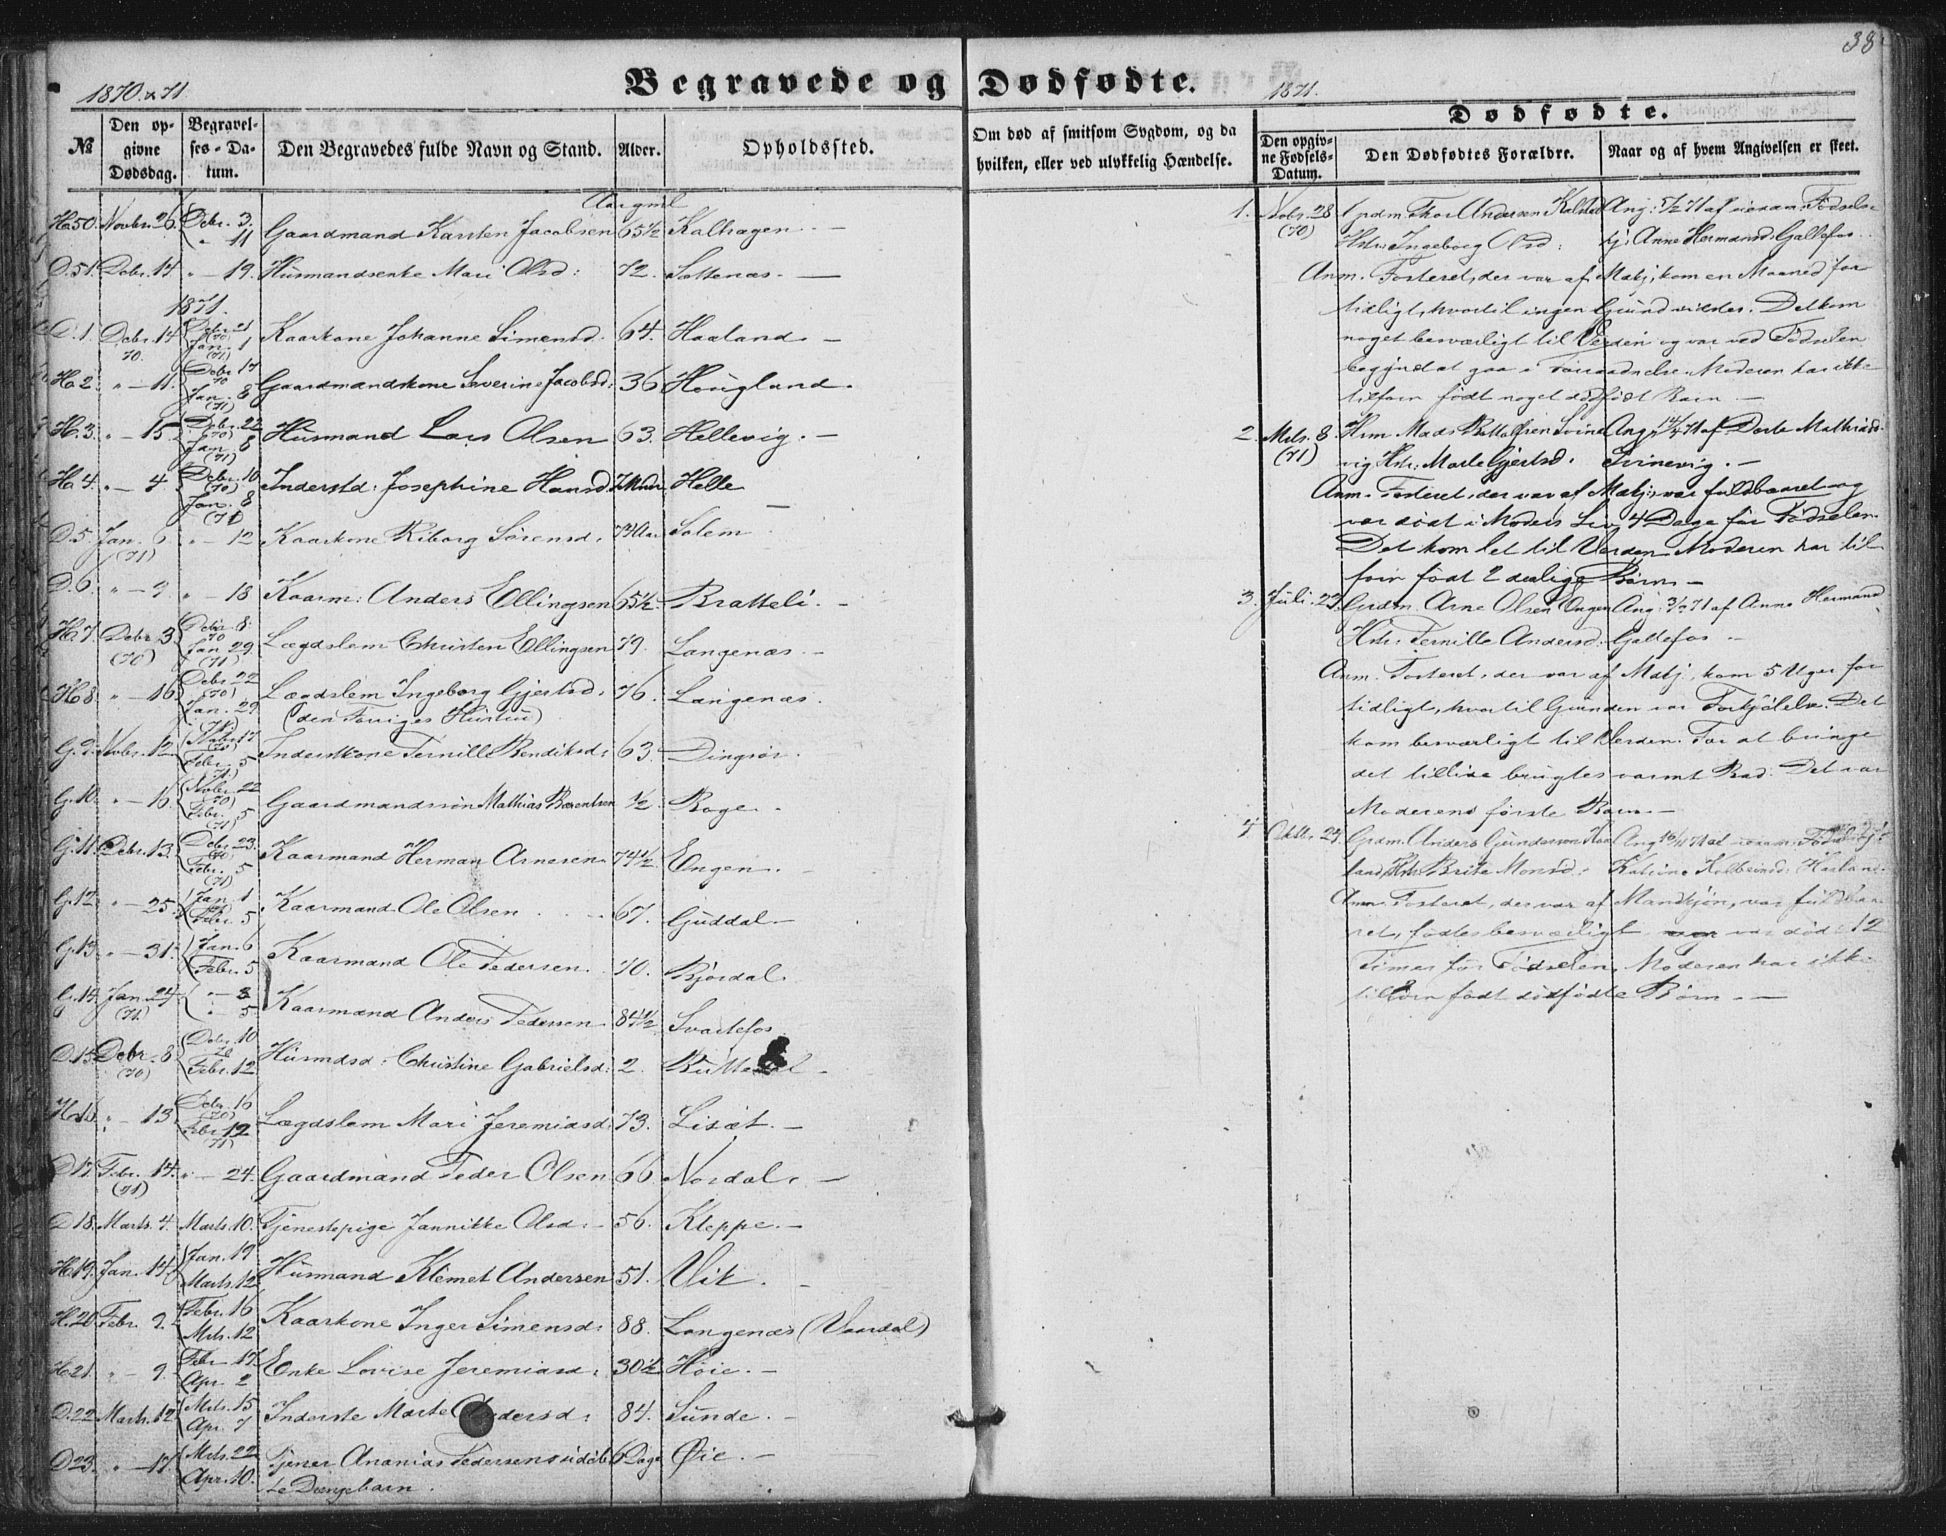 38
1870 & 71.
Begravede og Dødfødte.
1871.
№
Den opgivne Dødsdag.
Begravelses-Datum.
Den Begravedes fulde Navn og Stand.
Alder.
Opholdssted.
Om død af smitsom Sygdom, og da hvilken, eller ved ulykkelig Hændelse.
Dødfødte.
Den opgivne Fødsels-Datum.
Den Dødfødtes Forældre.
Naar og af hvem Angivelsen er skeet.
Aargml
H. 50. Novbr. 26. Debr. 3. " 11 Gaardmand Karsten Jacobsen 65½ Kalhagen. -
D. 51. Debr. 14 " - 19. Husmandsenke Mari Olsd: 72. Lottenæs. -
1871.
D. 1. Debr. 14 70. Debr. 21 (70) Jan. 1 (71) Kaarkone Johanne Simensd. 64. Haaland. -
H. 2. " - 11. Debr. 17 70 Jan. 8 (71) Gaardmandskone Severine Jacobsd. 36 Hougland.
H. 3. " - 15. Debr. 22 (70) Jan. 8 (71) Husmand Lars Olsen 63. Hellevig. -
H. 4. " - 4 Debr. 10 (70) Jan. 8 (71) Inderstd: Josephine Hansd. Helle -
D. 5 Jan. 6 (71) " - 12 Kaarkone Riborg Sørensd. Solem
D. 6. " - 9. " - 18 Kaarm: Anders Ellingsen 65½ Bratteli. -
H. 7. Debr. 3 (70) Debr. 8. 70 Jan 29. (71) Lægdslem Christen Ellingsen 79. Langenæs. -
H. 8. " - 16 Debr. 22 (70) Jan. 29. (71) Lægdslem Ingeborg Gjertsd. 76. Langenæs.
(den Forriges Hustru)
G. 9. Novbr. 12. Novbr. 17 (70) Febr. 5 (71) Inderstkone Pernille Bendiksd: 63. Dingsør.
G. 10. " - 16. Novbr. 22 (70) Febr. 5 (71) Gaardmandssøn Mathias Berentsen ½. Roge.
G. 11. Debr. 13. Debr. 23. (70) Febr. 5 (71) Kaarmand Herman Arnesen. 74½ Engen.
G. 12. " - 25. Jan. 1 Febr. 5 Kaarmand Ole Olsen 67. Guddal. -
G. 13. " - 31. Jan. 6 Febr. 5 Kaarmand Ole Pedersen. 70. Bjørdal.
G. 14. Jan. 24 (71.) " - 3 " 5 Kaarmand Anders Pedersen 84½ Svartefos
D. 15. Debr. 8 (70) Debr. 10 70 Febr. 12 Husmdsd: Christine Gabrielsd: 2.
H. 16. " - 13. Debr. 16 (70) Febr 12 (71) Lægdslem Mari Jeremiasd. 73. Lisæt. -
D. 17. Febr. 14. (71) " - 24. Gaardmand Peder Olsen 66 Nordal. -
D. 18. Marts. 4. Marts. 10. Tjenestepige Jannikke Olsd: - 56. Kleppe. -
H. 19. Jan. 14 Jan. 19 Marts. 12 Husmand Klemet Andersen 51. Vik. -
H. 20. Febr. 9. Febr. 16 Mrts. 12 Kaarkone Inger Simensd: 88. Langenæs (Vaardal)
H. 21. " - 9. Febr. 17 Apr. 2 Enke Lovise Jeremiasd: 30½ Høie. -
D. 22. Marts. 12. Mrts. 15 Apr. 7 Inderste Marte Pedersd: 84. Sunde. -
D. 23. " - 17. Mrts. 22 Apr. 10. Tjener Ananias Pedersens udøbte Drengebarn. 6 Dage Øie. -
1. Nobr. 28 (70) Grdm. Thor Andersen Hstr. Ingeborg Olsd: Ang: af exam: Fødselshj. Anne Hermansd. Galtefos.
Anm. Fosteret, der var af Mskj, kom en Maaned for
tidligt, hvortil ingen Grund vidstes. Det kom
noget besværligt til Verden og var ved Fødselen
begyndt at gaa i Forraadnelse. Moderen har ikke
tilforn født noget dødfødt Barn -
2. Mrts. 8 (71) Hsm Mads Svinevig Hstr: Marte Gjertsd. Ang: af Dorte Mathiasd. Svinevig. -
Anm. Fosteret, der var af Mskj: var fuldbaaret og
var dødt i Moders Liv 4 Dage før Fødselen.
Det kom let til Verden. Moderen har til
forn født 2 Børn -
3. Juli. 23. Grdm. Arne Olsen Engen Hstr: Pernille Andersd. Ang: af Anne Hermansd. Galtefos -
Anm. Fosteret, der var af Mskj, kom 5 Uger for
tidligt, hvortil Grunden var Forkjølelse. Det
kom besværligt til Verden. For at bringe
det tillive brugtes varmt Bad. Det var
Moderens første Barn. -
4. Oktbr. 24. Grdm. Anders Gundersen Haaland Hstr Brite Monsd: Ang. af exam: Fødselshj: Katrine Kolbeinsd: Haaland.
Anm. Fosteret, der var af Mandkjøn, var fuldbaaret, fødtes besværligt var død 12
Timer før Fødselen. Moderen har ikke
tilforn født dødfødte Børn. -